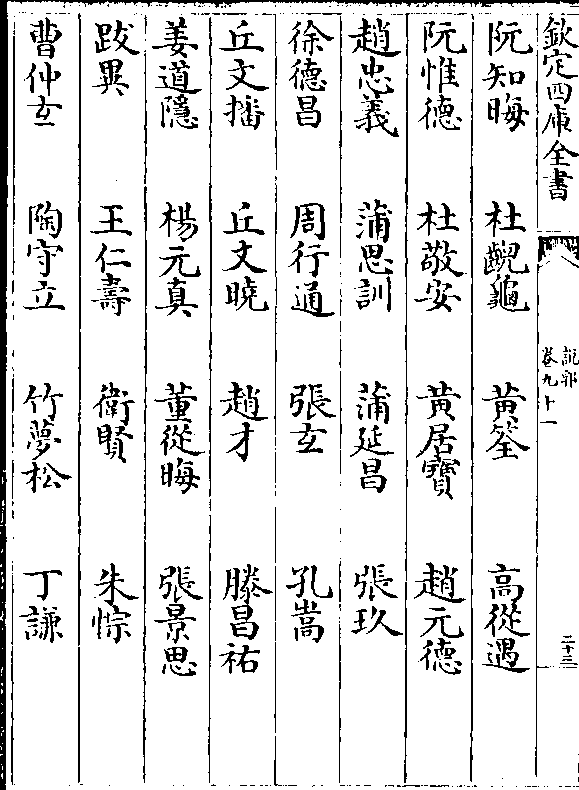 欽定四庫全書
說郛
卷九十一
二十三
阮知晦 杜齯龜 黃筌 高從遇
阮惟德 杜敬安 黃居寶 趙元德
趙忠義 蒲思訓 蒲延昌 張玖
徐德昌 周行通 張玄 孔嵩
丘文播 丘文曉 趙才 滕昌祐
姜道隱 楊元真 董從晦 張景思
跋異 王仁壽 衛賢 朱悰
曹仲玄 陶守立 竹夢松 丁謙